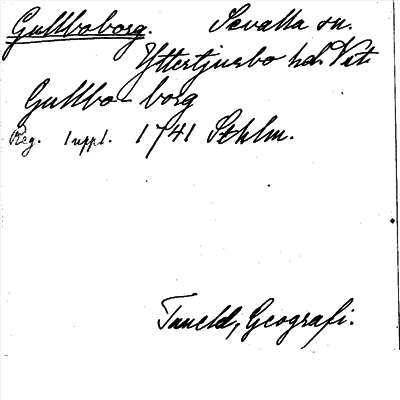 Gullboborg. Sevalla sn.
Yttertjurbo hd. Vstm.
Gullbo-borg
Reg. Suppl. 1741 Sthlm.
Tuneld, Geografi.